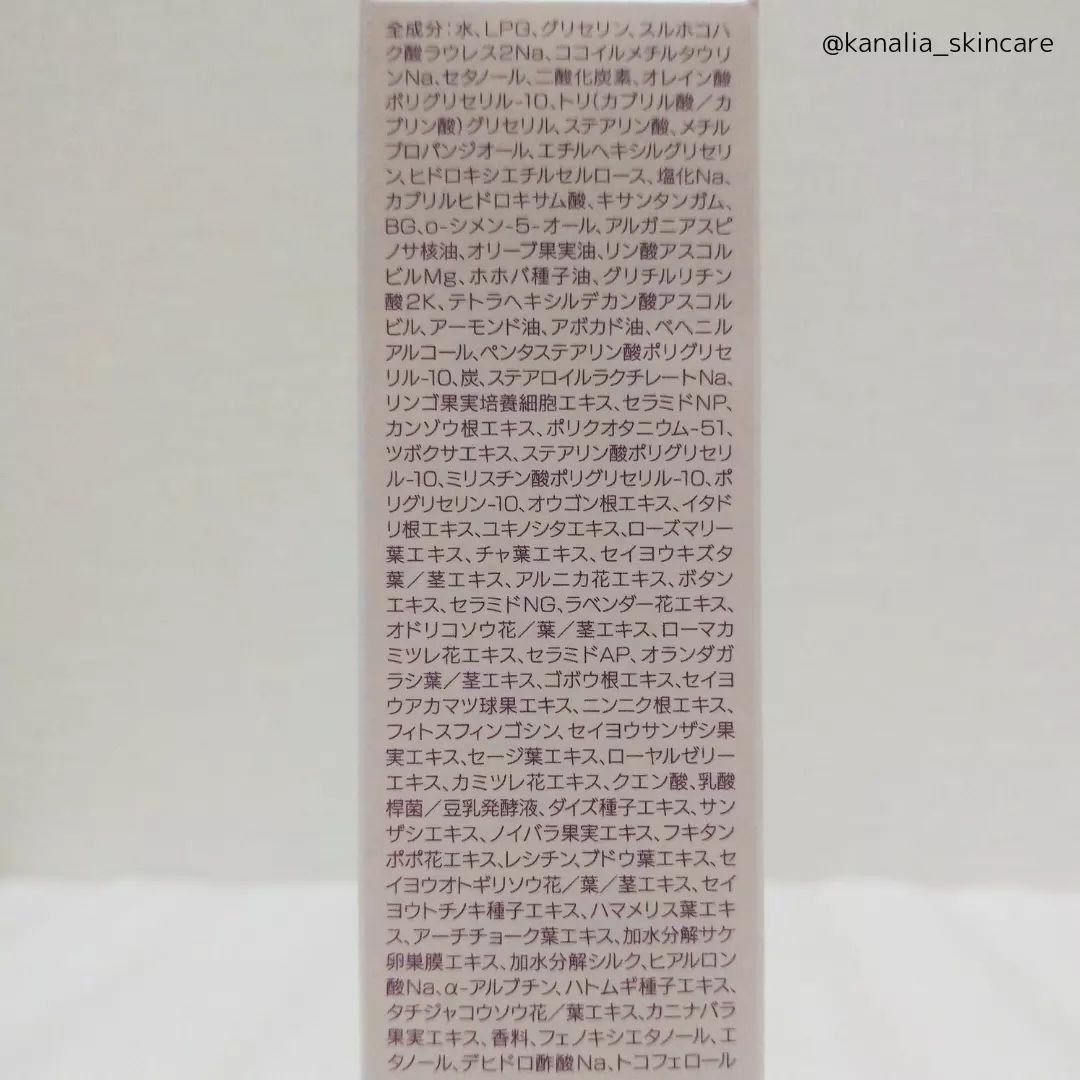 @kanalia_skincare
全成分:水、LPG、グリセリン、スルホコハ
ク酸ラウレス2Na、ココイルメチルタウリ
ンNa、セタノール、二酸化炭素、オレイン酸
ポリグリセリル-10、トリ(カプリル酸/カ
プリン酸)グリセリル、ステアリン酸、メチル
プロパンジオール、エチルヘキシルグリセリ
ン、ヒドロキシエチルセルロース、塩化Na、
カプリルヒドロキサム酸、キサンタンガム、
BG、o-シメン-5-オール、アルガニアスピ
ノサ核油、オリーブ果実油、リン酸アスコル
ビルMg、ホホバ種子油、グリチルリチン
酸2K、テトラヘキシルデカン酸アスコル
ビル、アーモンド油、アボカド油、ベヘニル
アルコール、ペンタステアリン酸ポリグリセ
リル-10、炭、ステアロイルラクチレートNa、
リンゴ果実培養細胞エキス、セラミドNP、
カンゾウ根エキス、ポリクオタニウム-51、
ツボクサエキス、ステアリン酸ポリグリセリ
ル-10、ミリスチン酸ポリグリセリル-10、ポ
リグリセリン-10、オウゴン根エキス、イタド
リ根エキス、ユキノシタエキス、ローズマリー
葉エキス、チャ葉エキス、セイヨウキズタ
葉/茎エキス、アルニカ花エキス、ボタン
エキス、セラミドNG、ラベンダー花エキス、
オドリコソウ花/葉/茎エキス、ローマカ
ミツレ花エキス、セラミドAP、オランダガ
ラシ葉/茎エキス、ゴボウ根エキス、セイヨ
ウアカマツ球果エキス、ニンニク根エキス、
フィトスフィンゴシン、セイヨウサンザシ果
実エキス、セージ葉エキス、ローヤルゼリー
エキス、カミツレ花エキス、クエン酸、乳酸
桿菌/豆乳発酵液、ダイズ種子エキス、サン
ザシエキス、ノイバラ果実エキス、フキタン
ポポ花エキス、レシチン、ブドウ葉エキス、セ
イヨウオトギリソウ花/葉/茎エキス、セイ
ヨウトチノキ種子エキス、ハマメリス葉エキ
ス、アーチチョーク葉エキス、加水分解サケ
卵巣膜エキス、加水分解シルク、ヒアルロン
酸Na、α-アルブチン、ハトムギ種子エキス、
タチジャコウソウ花/葉エキス、カニナバラ
果実エキス、香料、フェノキシエタノール、エ
タノール、デヒドロ酢酸Na、トコフェロール